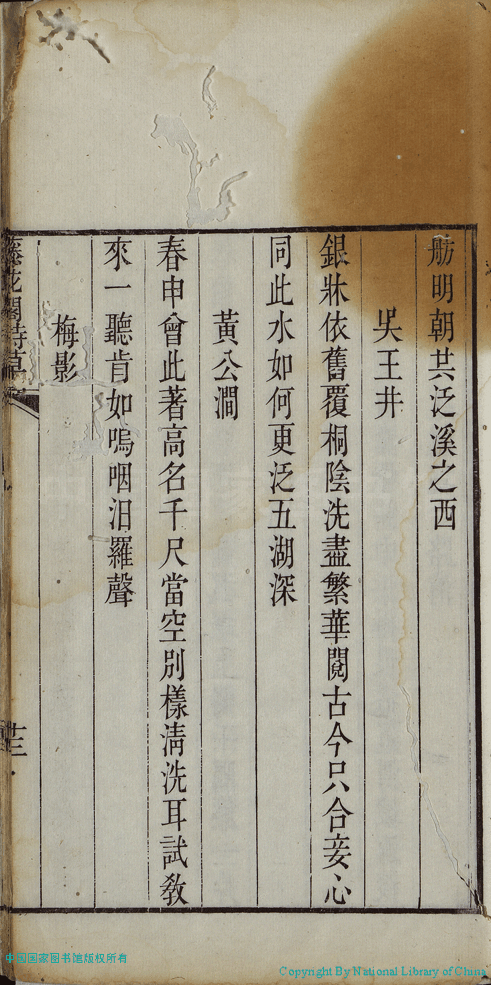 舫明朝共泛溪之西
吳王井
銀牀依舊覆桐陰洗盡繁華閱古今只合妾心
同此水如何更泛五湖深
黃公澗
春申曾此著高名千尺當空別樣淸洗耳試敎
來一聽肯如嗚咽汨羅聲
梅影
花閣詩草
廿三
中国国家图书馆版权所有
Copyright By National Library of China